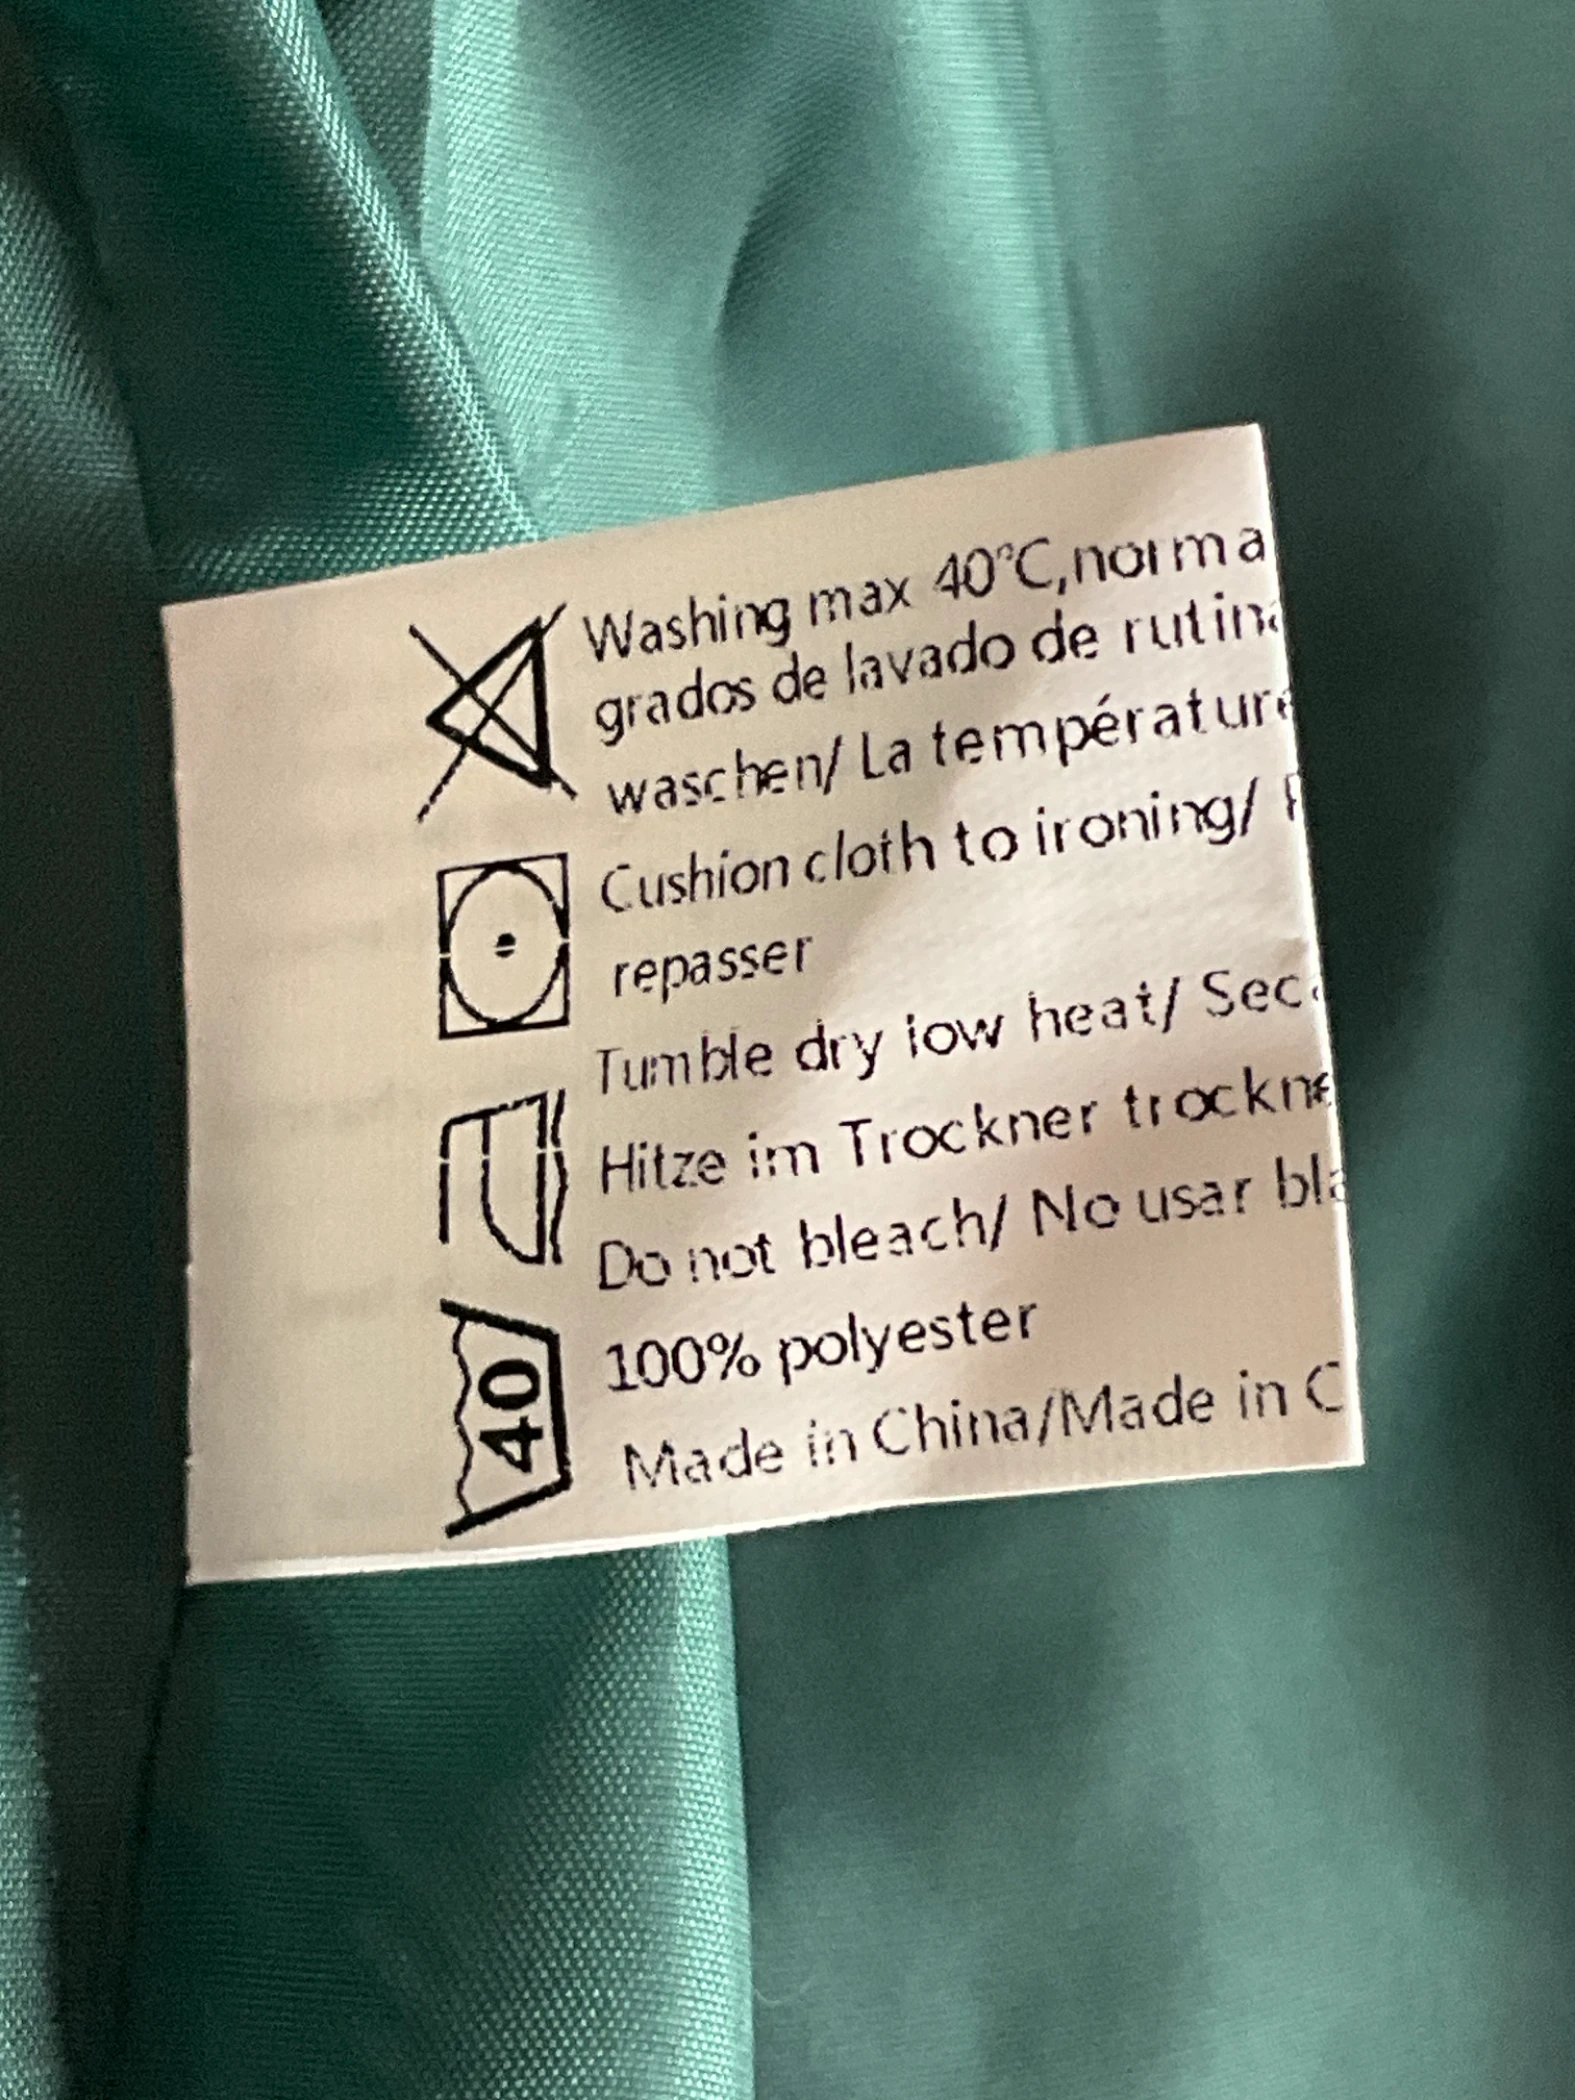 Washing max 40°C,norma
grados de lavado de rutina
waschen/ La température
Cushion cloth to ironing/
repasser
Tumble dry low heat/ Seca
Hitze im Trockner trockne
Do not bleach/ No usar bla
100% polyester
Made in China/Made in C
40